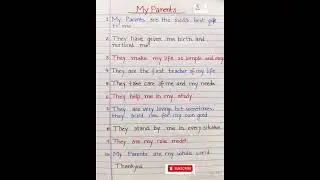 My Parents
1. My Parents are the God's best gift
to me.
2. They have given me birth and
nurtured me.
3. They make my life so simple and easy
4. They are the first teacher of my life
5. They take care of me and my needs
6. They help me in my study
7. They are very loving but sometimes
they scold me for my own good
8. They stand by me in every situation
9. They are my role model
10. My Parents are my whole world.
Thankyou
SUBSCRIBE